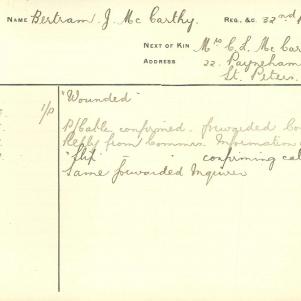 NAME Bertram. J. Mc Carthy. REG. &C. 32nd
NEXT OF KIN Mrs C. L. Mc Car
ADDRESS 22. Payneham
St. Peters.
1/P "Wounded"
P/Cable confirmed. forwarded Co
Reply from Commrs. Information
confirming cab
Same forwarded Inquirer